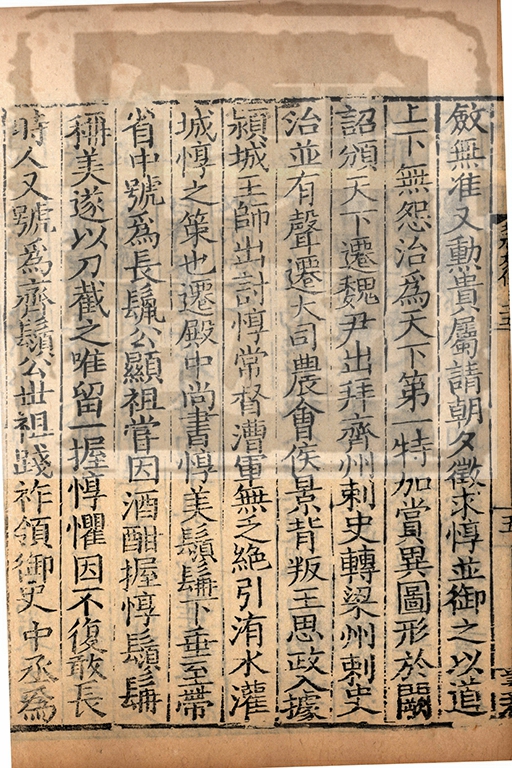 斂無准又勳貴屬請朝夕徵求惇並御之以道
上下無怨治爲天下第一特加賞異圖形於闕
詔頒天下遷魏尹出拜齊州刺史轉梁州刺史
治並有聲遷大司農會侯景背叛王思政入據
潁城王師出討惇常督漕軍無乏絶引洧水灌
城惇之策也遷殿中尚書惇美鬚髯下垂至帶
省中號爲長鬣公顯祖嘗因酒酣握惇鬚髯
稱美遂以刀截之唯留一握惇懼因不復敢長
時人又號爲齊鬚公世祖踐祚領御史中丞爲